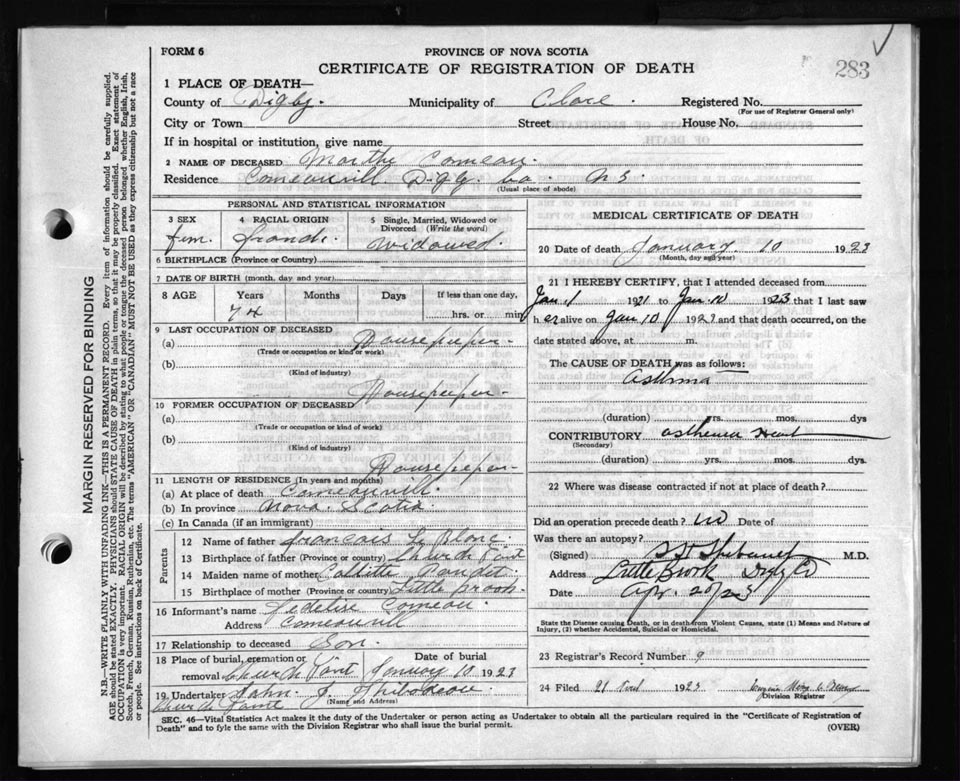 283
FORM 6
PROVINCE OF NOVA SCOTIA
CERTIFICATE OF REGISTRATION OF DEATH
1 PLACE OF DEATH—
County of Digby. Municipality of Clare. Registered No.
(For use of Registrar General only)
City or Town Street House No.
If in hospital or institution, give name
2 NAME OF DECEASED Marthe Comeau.
Residence Comeauvill Digby Co. N S.
(Usual place of abode)
PERSONAL AND STATISTICAL INFORMATION
3 SEX 4 RACIAL ORIGIN 5 Single, Married, Widowed or Divorced (Write the word)
fem. Widowed.
6 BIRTHPLACE (Province or Country)
7 DATE OF BIRTH (month, day and year)
8 AGE Years Months Days If less than one day,
74 hrs. or min
9 LAST OCCUPATION OF DECEASED
(a) Housepeeper
(Trade or occupation or kind or work)
(b)
(Kind of industry)
Housepeeper
10 FORMER OCCUPATION OF DECEASED
(a)
(Trade or occupation or kind or work)
(b)
(Kind of industry)
Housepeper
11 LENGTH OF RESIDENCE (In years and months)
(a) At place of death Comeauvill.
(b) In province Nova Scotia
(c) In Canada (if an immigrant)
Parents
12 Name of father francois L Blanc.
13 Birthplace of father (Province or country) Church Point
14 Maiden name of mother
15 Birthplace of mother (Province or country) Little Brook.
16 Informant's name Comeau
Address Comeauvill
17 Relationship to deceased Son.
18 Place of burial, cremation or removal Church Point Date of burial January 10 1923
19 Undertaker John J. Thibodeau
(Name and Address)
Church Point
MEDICAL CERTIFICATE OF DEATH
20 Date of death January 10 1923
(Month, day and year)
21 I HEREBY CERTIFY, that I attended deceased from
Jan. 1 1921 to Jan. 10 1923 that I last saw
her alive on Jan 10 1923 and that death occurred, on the
date stated above, at m.
The CAUSE OF DEATH was as follows:
Asthma
(duration) yrs. mos. dys
CONTRIBUTORY asthenia Heart
(Secondary)
(duration) yrs. mos. dys.
22 Where was disease contracted if not at place of death?
Did an operation precede death? no Date of
Was there an autopsy?
(Signed) M.D.
Address Little Brook Digby Co
Date Apr. 20/23
State the Disease causing Death, or in death from Violent Causes, state (1) Means and Nature of
Injury, (2) whether Accidental, Suicidal or Homicidal.
23 Registrar's Record Number 9
24 Filed 21 1923
Division Registrar
SEC. 46—Vital Statistics Act makes it the duty of the Undertaker or person acting as Undertaker to obtain all the particulars required in the "Certificate of Registration of
Death" and to fyle the same with the Division Registrar who shall issue the burial permit. (OVER)
MARGIN RESERVED FOR BINDING
N.B.—WRITE PLAINLY WITH UNFADING INK—THIS IS A PERMANENT RECORD. Every item of information should be carefully supplied.
AGE should be stated EXACTLY. PHYSICIANS should STATE CAUSE OF DEATH in plain terms, so that it may be properly classified. Exact statement of
OCCUPATION is very important. RACIAL ORIGIN will be described by stating to what people or tongue the deceased person belonged whether English, Irish,
Scotch, French, German, Russian, Ruthenian, etc. The terms "AMERICAN" or "CANADIAN" MUST NOT BE USED as they express citizenship but not a race
or people. See instructions on back of Certificate.